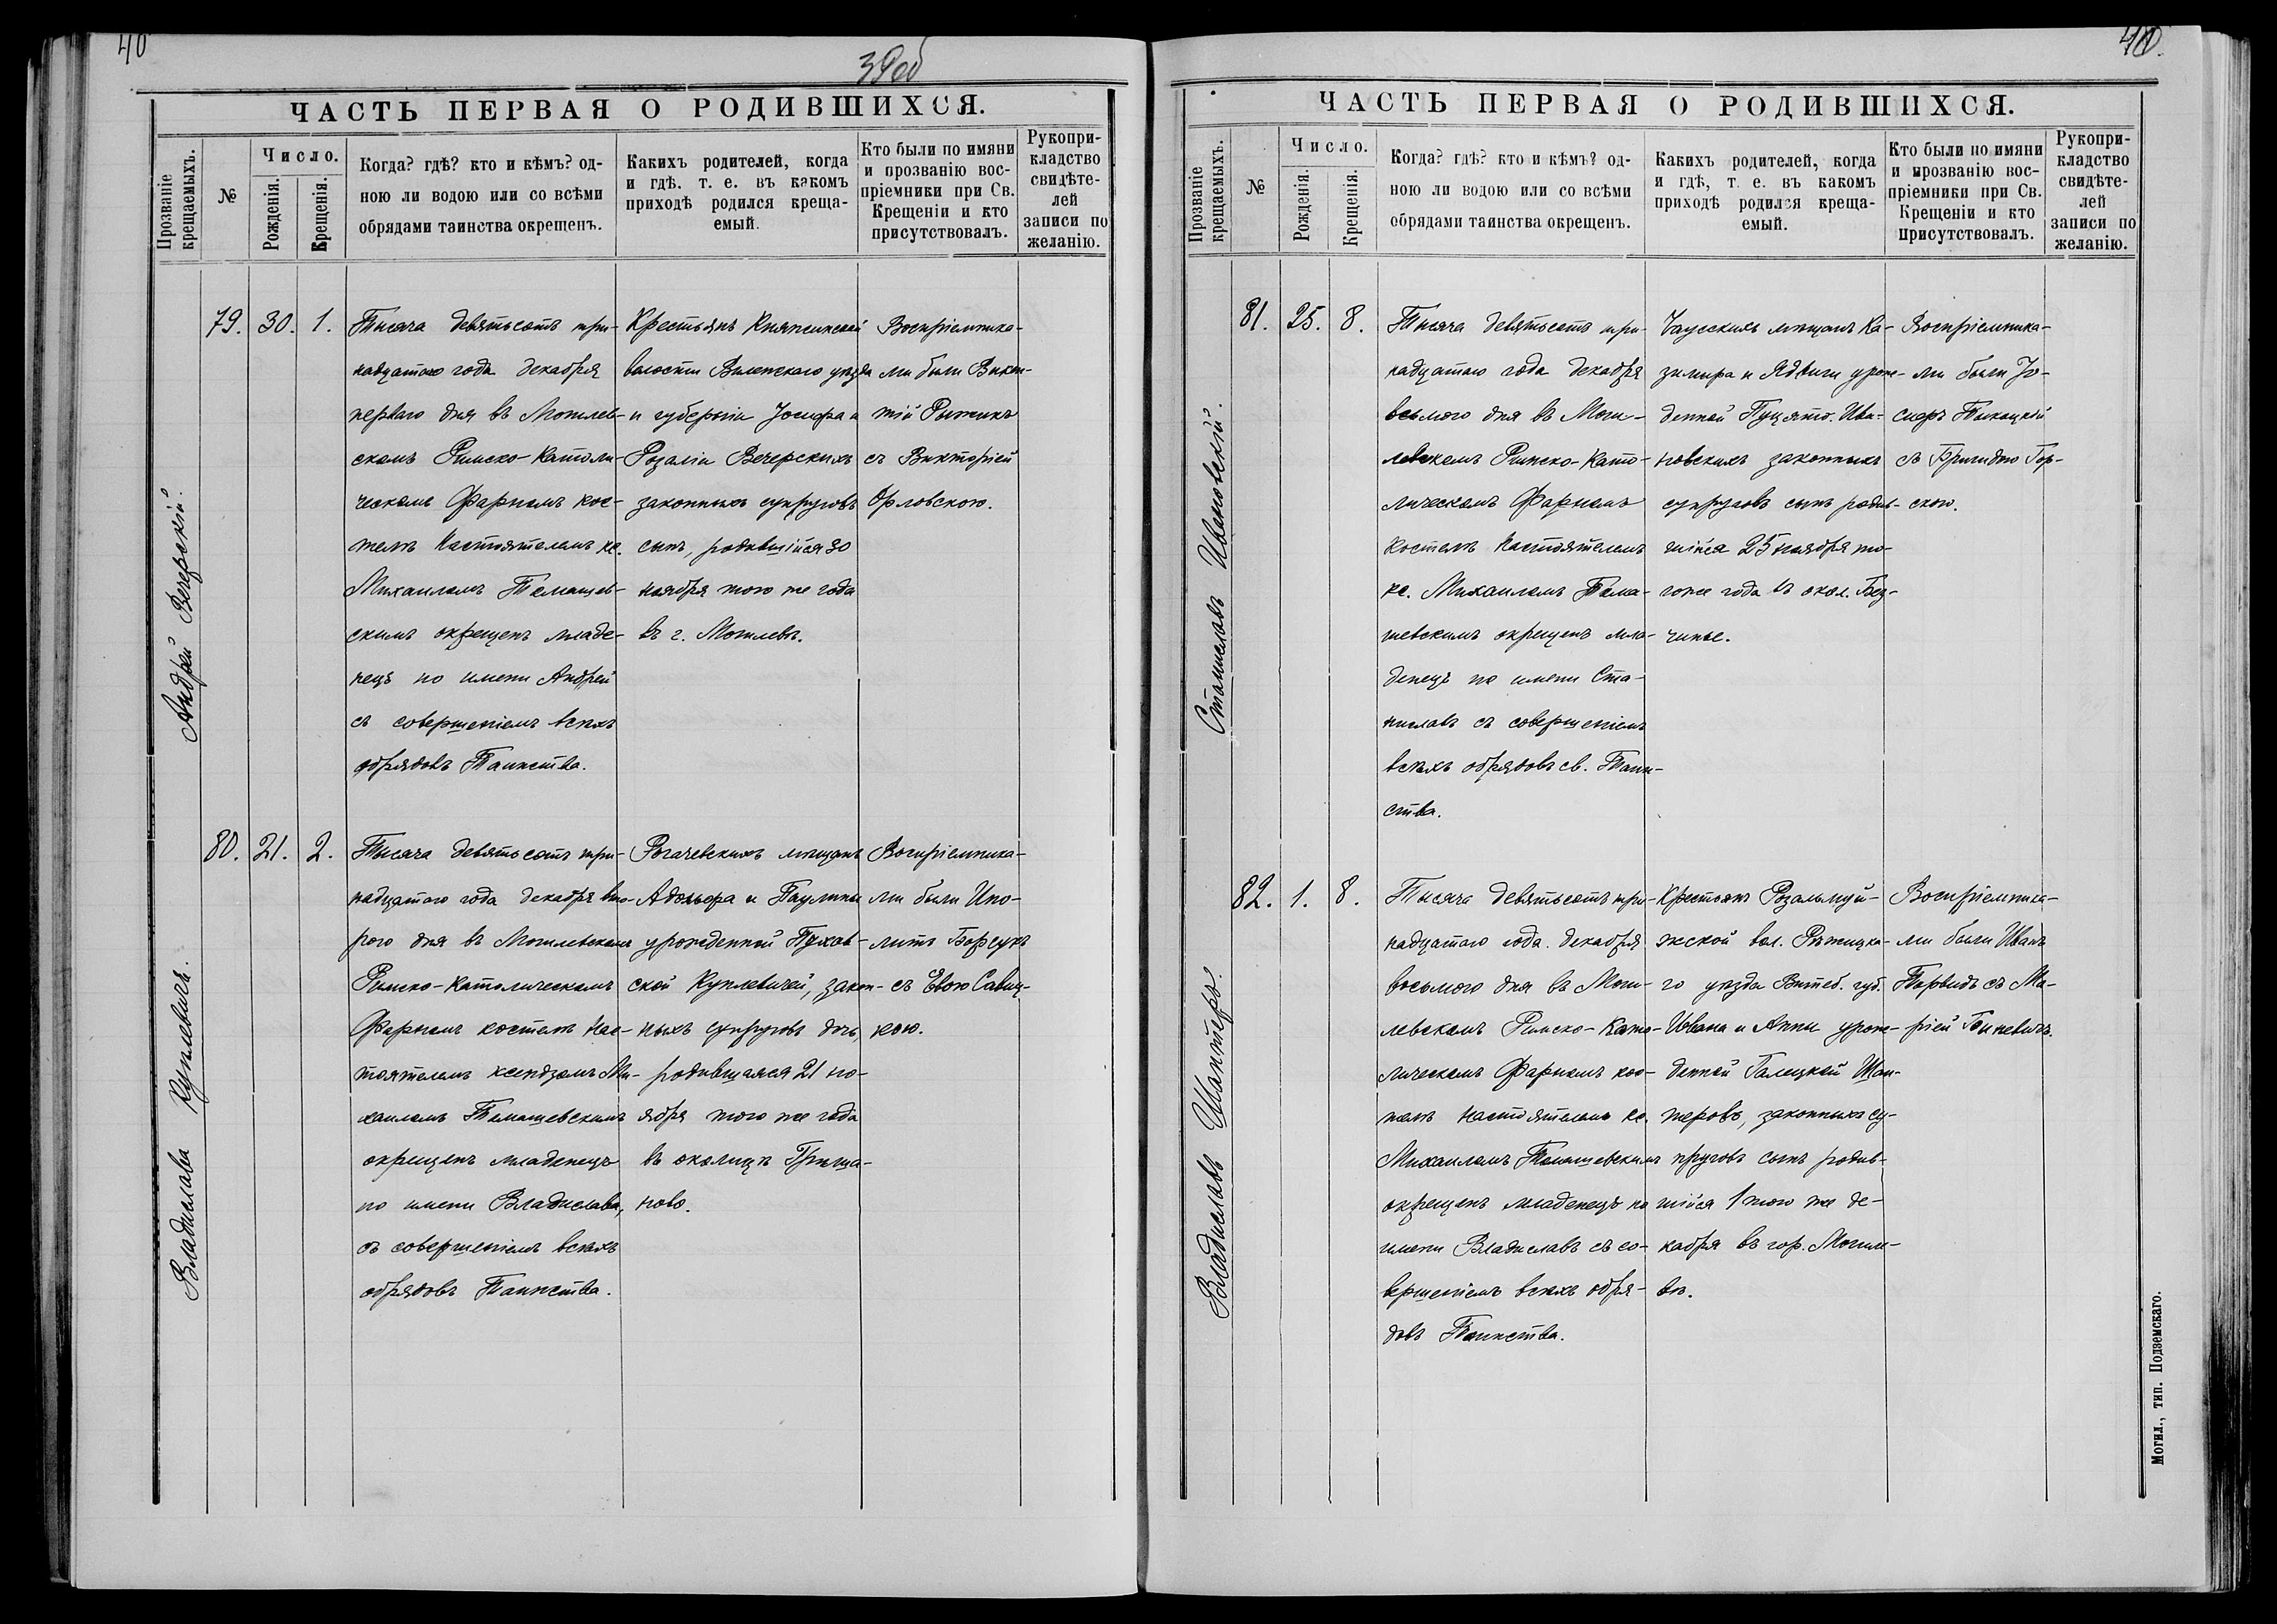 40
39об
ЧАСТЬ ПЕРВАЯ О РОДИВШИХСЯ.
Прозваніе крещаемыхъ.
№
Число.
Рожденія.
Крещенія.
Когда? гдѣ? кто и кѣмъ? од-
ною ли водою или со всѣми
обрядами таинства окрещенъ.
Какихъ родителей, когда
и гдѣ. т. е. въ какомъ
приходѣ родился креща-
емый.
Кто были по имяни
и прозванію вос-
пріемники при Св.
Крещеніи и кто
присутствовалъ.
Рукопри-
кладство
свидѣте-
лей
записи по
желанію.
Андрей Вечерскій.
79.
30.
1.
Тысяча девятьсотъ три-
надцатаго года декабря
перваго дня въ Могилев-
скомъ Римско-Католи-
ческомъ Фарномъ кос-
телѣ Настоятелемъ кс.
Михаиломъ Томашев-
скимъ окрещенъ младе-
нецъ по имени Андрей
съ совершеніемъ всѣхъ
обрядовъ Таинства.
Крестьянъ Княгининской
волости Виленскаго уѣзда
и губерніи Іосифа и
Розаліи Вечерскихъ
законныхъ супруговъ
сынъ, родившійся 30
ноября того же года
въ г. Могилевѣ.
Воспріемника-
ми были Викен-
тій Рыжикъ
съ Викторіей
Орловскою.
Владислава Куплевичъ.
80.
21.
2.
Тысяча девятьсотъ три-
надцатаго года декабря вто-
рого дня въ Могилевскомъ
Римско-Католическомъ
Фарномъ костелѣ Нас-
тоятелемъ ксендзомъ Ми-
хаиломъ Томашевскимъ
окрещенъ младенецъ
по имени Владислава,
съ совершеніемъ всѣхъ
обрядовъ Таинства.
Рогачевскихъ мѣщанъ
Адольфа и Паулины
урожденной Пухов-
ской Куплевичей, закон-
ныхъ супруговъ дочь,
родившаяся 21 но-
ября того же года
въ околицѣ Гриша-
ново.
Воспріемника-
ми были Ипо-
литъ Борсукъ
съ Евою Савиц-
кою.
40.
ЧАСТЬ ПЕРВАЯ О РОДИВШИХСЯ.
Прозваніе крещаемыхъ.
№
Число.
Рожденія.
Крещенія.
Когда? гдѣ? кто и кѣмъ? од-
ною ли водою или со всѣми
обрядами таинства окрещенъ.
Какихъ родителей, когда
и гдѣ, т. е. въ какомъ
приходѣ родился креща-
емый.
Кто были по имяни
и прозванію вос-
пріемники при Св.
Крещеніи и кто
присутствовалъ.
Рукопри-
кладство
свидѣте-
лей
записи по
желанію.
Станиславъ Ивановскій.
81.
25.
8.
Тысяча девятьсотъ три-
надцатаго года декабря
восьмого дня въ Моги-
левскомъ Римско-Като-
лическомъ Фарномъ
костелѣ Настоятелемъ
кс. Михаиломъ Тома-
шевскимъ окрещенъ мла-
денецъ по имени Ста-
ниславъ съ совершеніемъ
всѣхъ обрядовъ св. Таин-
ства.
Чаусскихъ мѣщанъ Ка-
зимира и Ядвиги урож-
денной Пуцято-Ива-
новскихъ законныхъ
супруговъ сынъ родив-
шійся 25 ноября то-
гоже года въ окол.
Воспріемника-
ми были Іо-
сифъ Тыкоцкій
съ Бригидою Гор-
скою.
Владиславъ Шантеръ.
82.
1.
8.
Тысяча девятьсотъ три-
надцатаго года декабря
восьмого дня въ Моги-
левскомъ Римско-Като-
лическомъ Фарномъ кос-
телѣ настоятелемъ кс.
Михаиломъ Томашевскимъ
окрещенъ младенецъ по
имени Владиславъ съ со-
вершеніемъ всѣхъ обря-
довъ Таинства.
Крестьянъ Розальмуй-
жской вол. Рѣжицка-
го уѣзда Витеб. губ.
Ивана и Анны урож-
денной Галецкой Шан-
теровъ, законныхъ су-
пруговъ сынъ родив-
шійся 1 того же де-
кабря въ гор. Могиле-
вѣ.
Воспріемника-
ми были Иванъ
съ Ма-
ріей Гинкевичъ.
Могил., тип. Подземскаго.